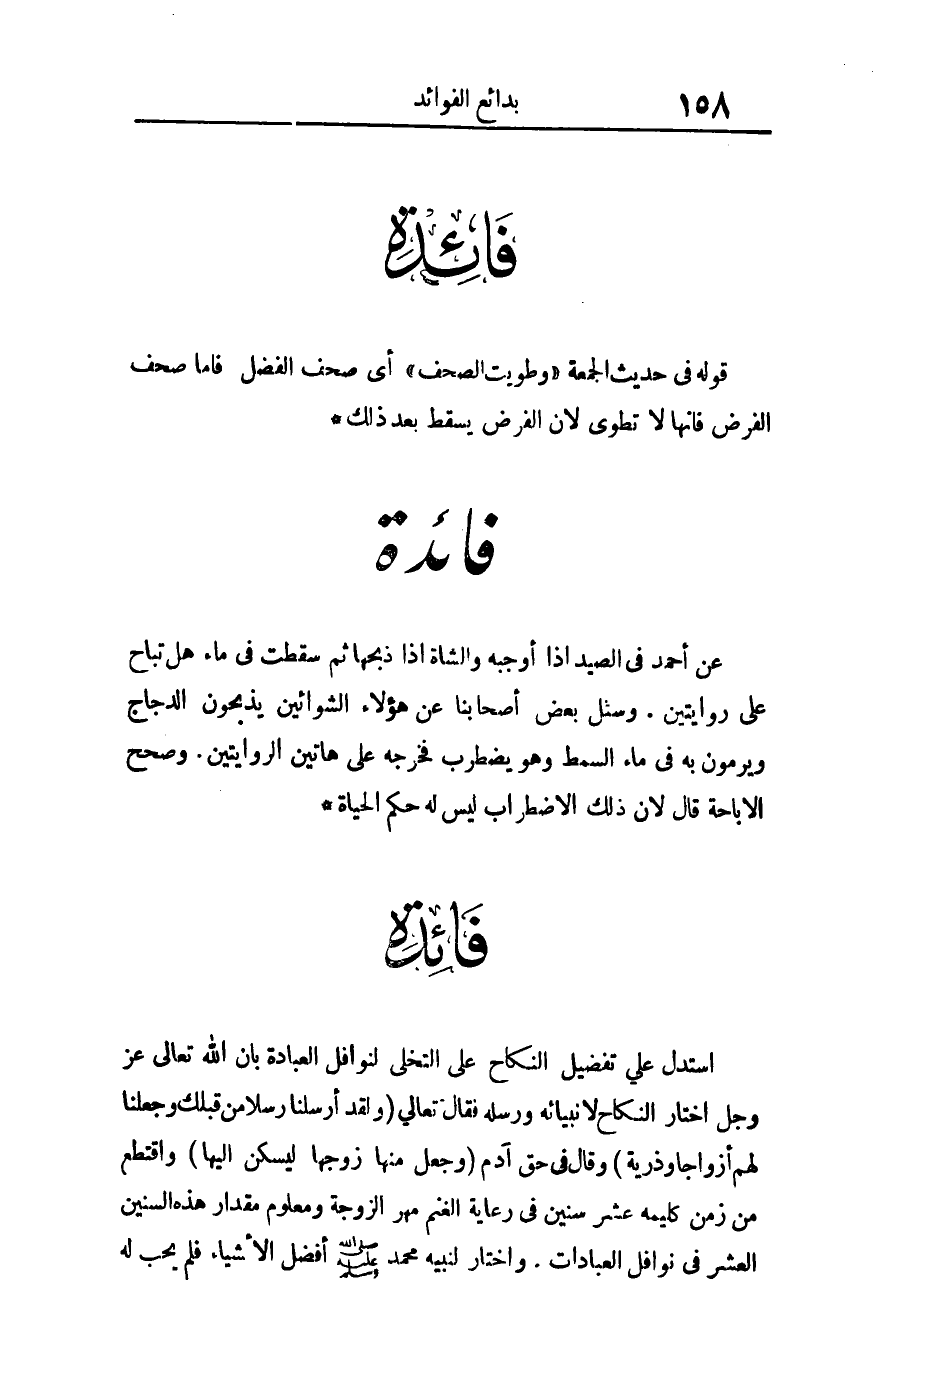 ١٥٨
بدائع الفوائد
فَائِدَة
قوله فى حديث الجمعة «وطويت الصحف» أى صحف الفضل فاما صحف
الفرض فانها لا تطوى لان الفرض يسقط بعد ذلك *
فائدة
عن أحمد فى الصيد اذا أوجبه والشاة اذا ذبحها ثم سقطت فى ماء هل تباح
على روايتين . وسئل بعض أصحابنا عن هؤلاء الشوائين يذبحون الدجاج
ويرمون به فى ماء السمط وهو يضطرب فخرجه على هاتين الروايتين . وصحح
الاباحة قال لان ذلك الاضطراب ليس له حكم الحياة *
فَائِدَة
استدل علي تفضيل النكاح على التخلى لنوافل العبادة بان الله تعالى عز
وجل اختار النكاح لانبيائه ورسله فقال تعالي (ولقد أرسلنا رسلا من قبلك وجعلنا
لهم أزواجا وذرية) وقال فى حق آدم (وجعل منها زوجها ليسكن اليها) واقتطع
من زمن كليمه عشر سنين فى رعاية الغنم مهر الزوجة ومعلوم مقدار هذه السنين
العشر فى نوافل العبادات . واختار لنبيه محمد ﷺ أفضل الأشياء فلم يحب له